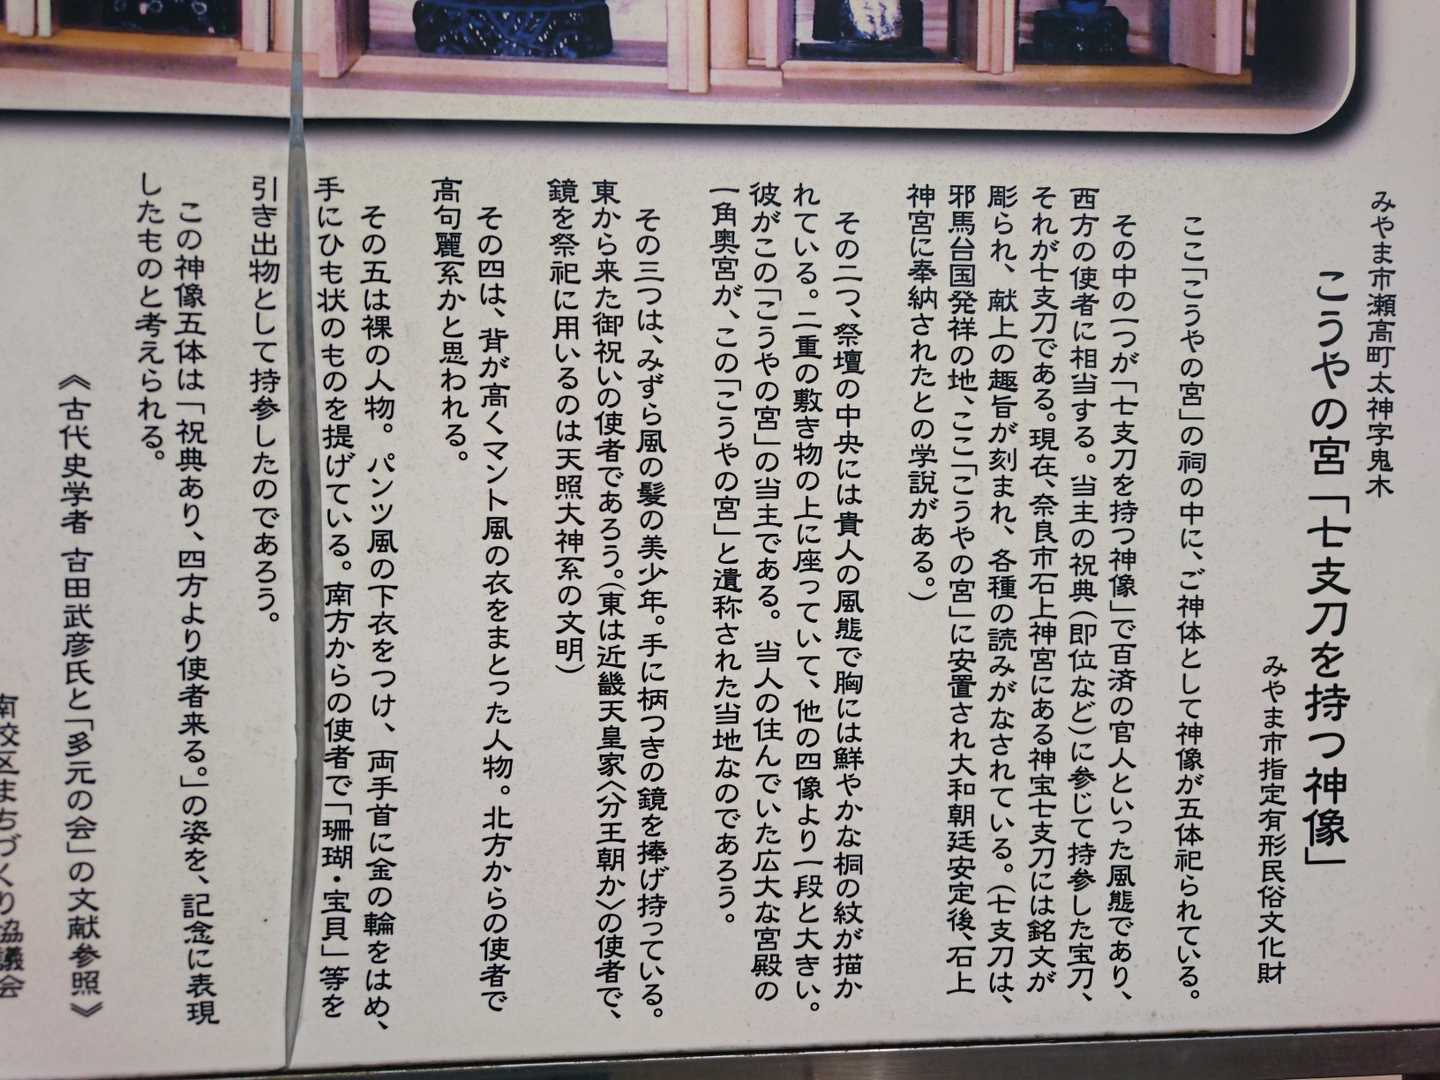 みやま市瀬高町太神字鬼木
こうやの宮「七支刀を持つ神像」
みやま市指定有形民俗文化財
ここ「こうやの宮」の祠の中に、ご神体として神像が五体祀られている。
その中の一つが「七支刀を持つ神像」で百済の官人といった風態であり、
西方の使者に相当する。当主の祝典(即位など)に参じて持参した宝刀、
それが七支刀である。現在、奈良市石上神宮にある神宝七支刀には銘文が
彫られ、献上の趣旨が刻まれ、各種の読みがなされている。(七支刀は、
邪馬台国発祥の地、ここ「こうやの宮」に安置され大和朝廷安定後、石上
神宮に奉納されたとの学説がある。)
その二つ、祭壇の中央には貴人の風態で胸には鮮やかな桐の紋が描か
れている。二重の敷き物の上に座っていて、他の四像より一段と大きい。
彼がこの「こうやの宮」の当主である。当人の住んでいた広大な宮殿の
一角奥宮が、この「こうやの宮」と遺称された当地なのであろう。
その三つは、みずら風の髪の美少年。手に柄つきの鏡を捧げ持っている。
東から来た御祝いの使者であろう。(東は近畿天皇家〈分王朝か〉の使者で、
鏡を祭祀に用いるのは天照大神系の文明)
その四は、背が高くマント風の衣をまとった人物。北方からの使者で
高句麗系かと思われる。
その五は裸の人物。パンツ風の下衣をつけ、両手首に金の輪をはめ、
手にひも状のものを提げている。南方からの使者で「珊瑚・宝貝」等を
引き出物として持参したのであろう。
この神像五体は「祝典あり、四方より使者来る。」の姿を、記念に表現
したものと考えられる。
《古代史学者 古田武彦氏と「多元の会」の文献参照》
南校区まちづくり協議会